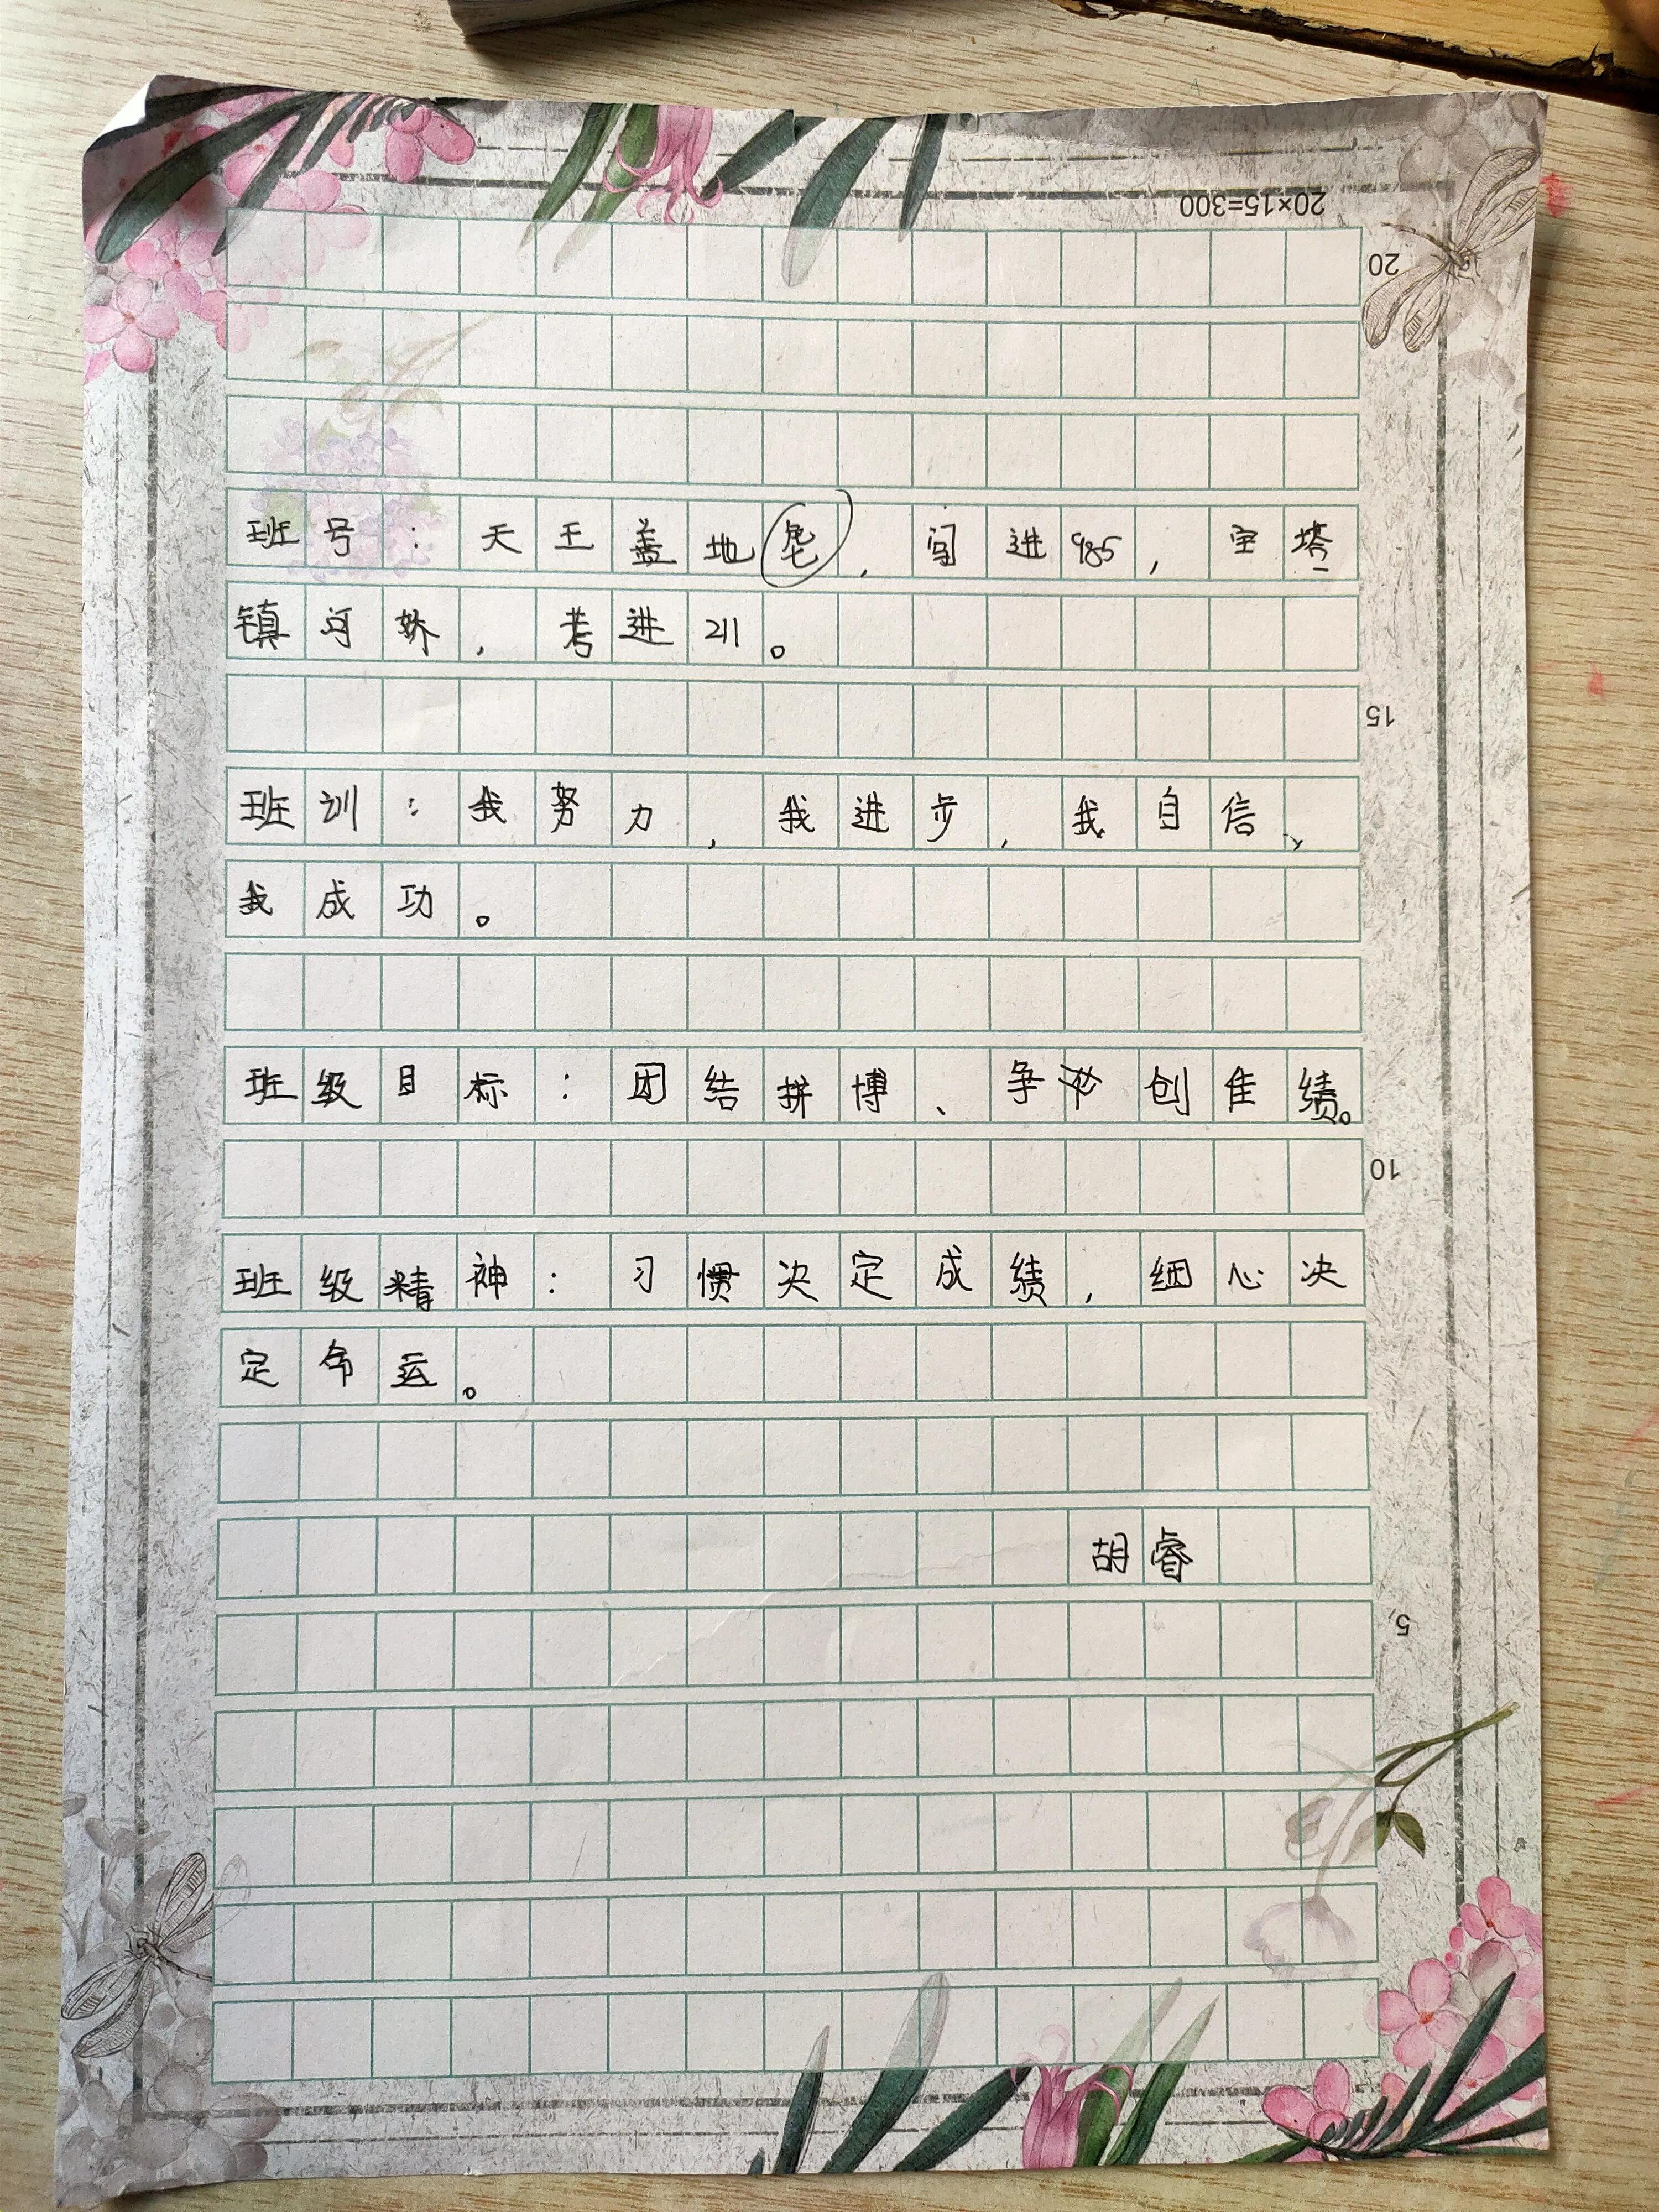 20×15=300
20
班号：天王盖地虎，闯进985，宝塔
镇河娇，考进211。
15
班训：我努力，我进步，我自信、
我成功。
班级目标：团结拼博、争创佳绩。
10
班级精神：习惯决定成绩，细心决
定命运。
胡睿
5